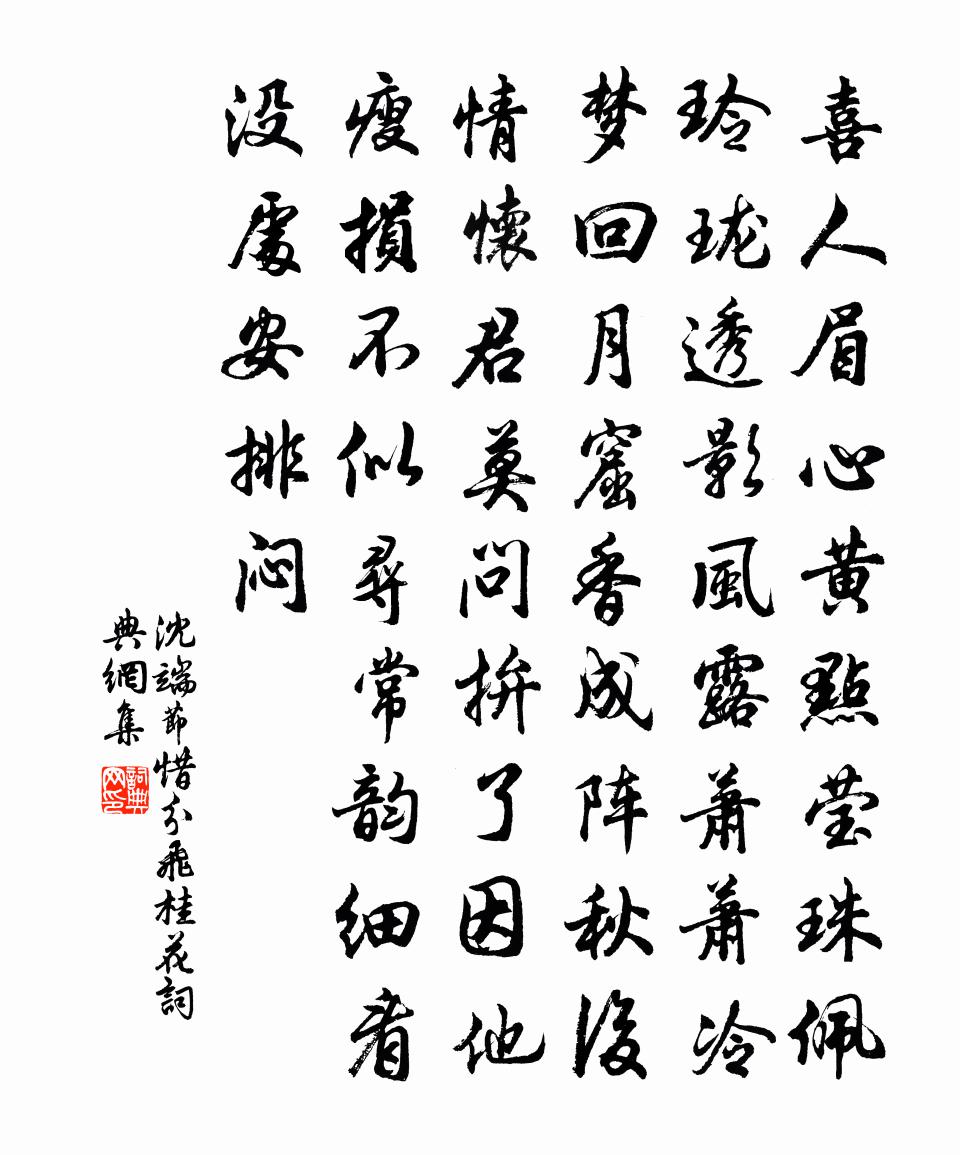 喜人眉心黄點莹珠佩
玲珑透影風露萧萧冷
梦回月窟香成阵秋後
情懷君莫问拚了因他
瘦損不似尋常韵细看
没處安排闷
沈端节惜分飛桂花詞
典網集
詞典
网印